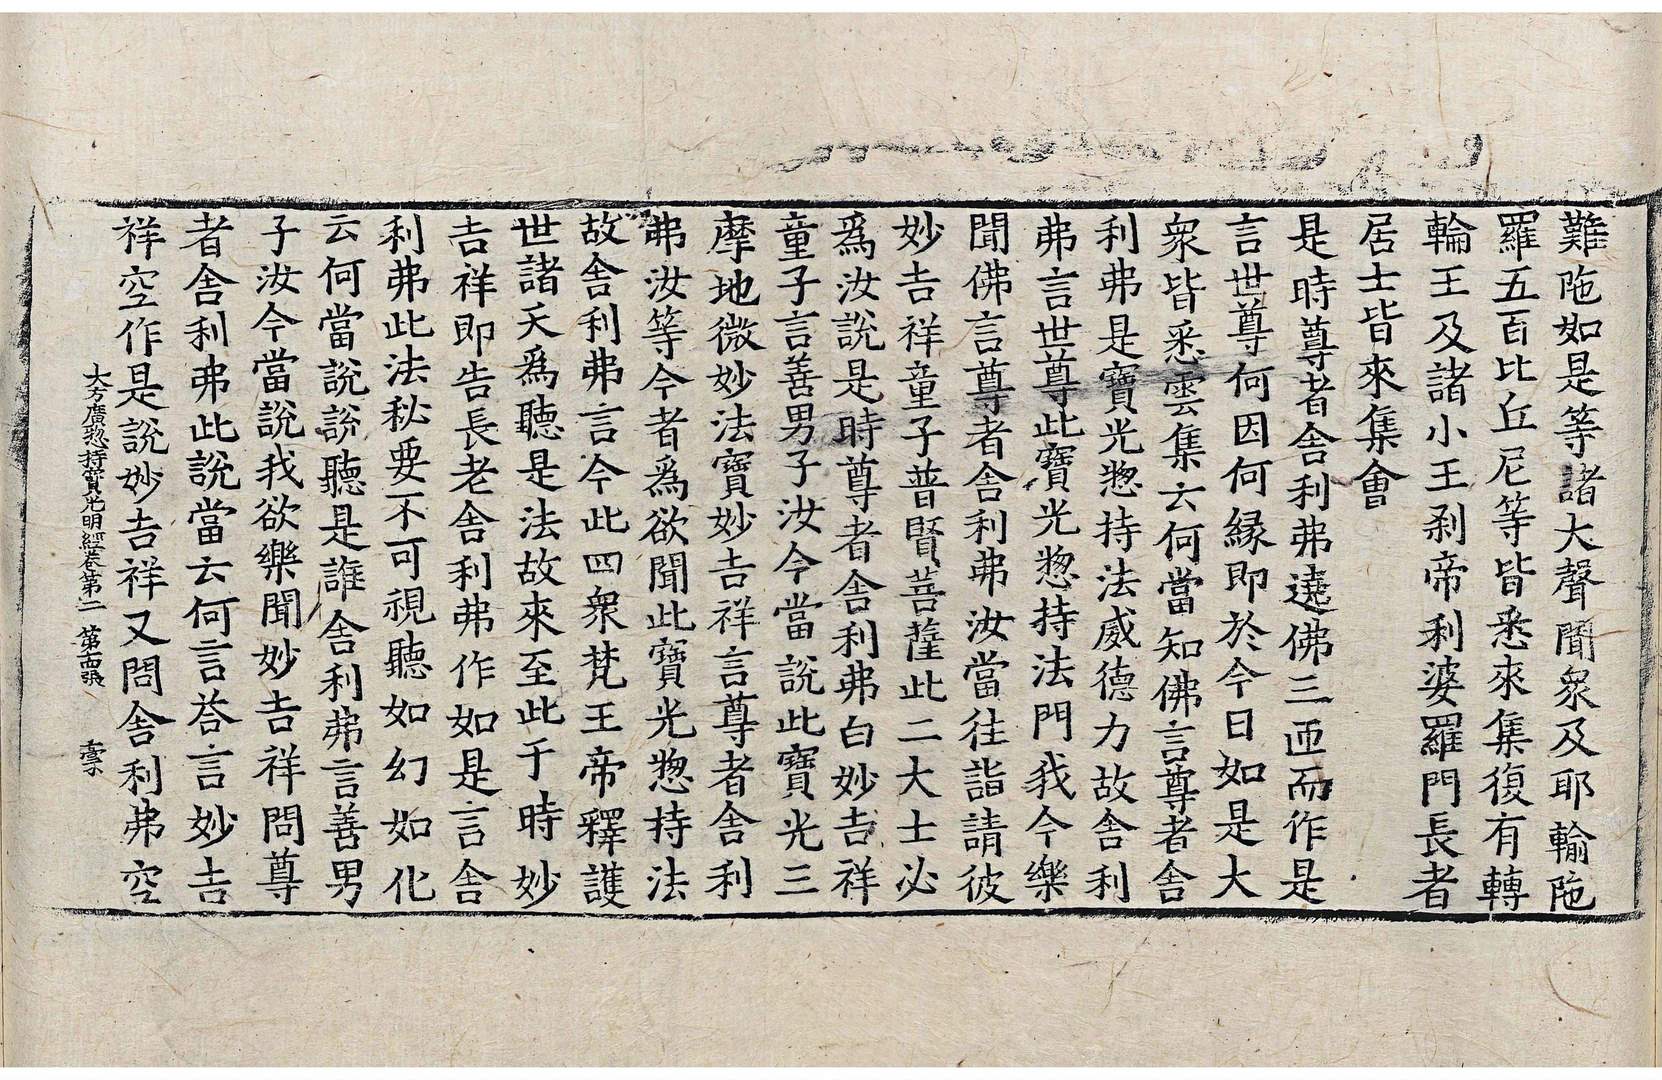 難陁如是等諸大聲聞衆及耶輸陁
羅五百比丘尼等皆悉來集復有轉
輪王及諸小王刹帝利婆羅門長者
居士皆來集會
是時尊者舍利弗遶佛三匝而作是
言世尊何因何縁即於今日如是大
衆皆悉雲集云何當知佛言尊者舍
利弗是寶光惣持法威德力故舍利
弗言世尊此寶光惣持法門我今樂
聞佛言尊者舍利弗汝當往詣請彼
妙吉祥童子普賢菩薩此二大士必
爲汝說是時尊者舍利弗白妙吉祥
童子言善男子汝今當說此寶光三
摩地微妙法寶妙吉祥言尊者舍利
弗汝等今者爲欲聞此寶光惣持法
故舍利弗言今此四衆梵王帝釋護
世諸天爲聽是法故來至此于時妙
吉祥即告長老舍利弗作如是言舍
利弗此法秘要不可視聽如幻如化
云何當說說聽是誰舍利弗言善男
子汝今當說我欲樂聞妙吉祥問尊
者舍利弗此說當云何言荅言妙吉
祥空作是說妙吉祥又問舍利弗空
大方廣惣持寶光明經卷第二　第十四張　槀